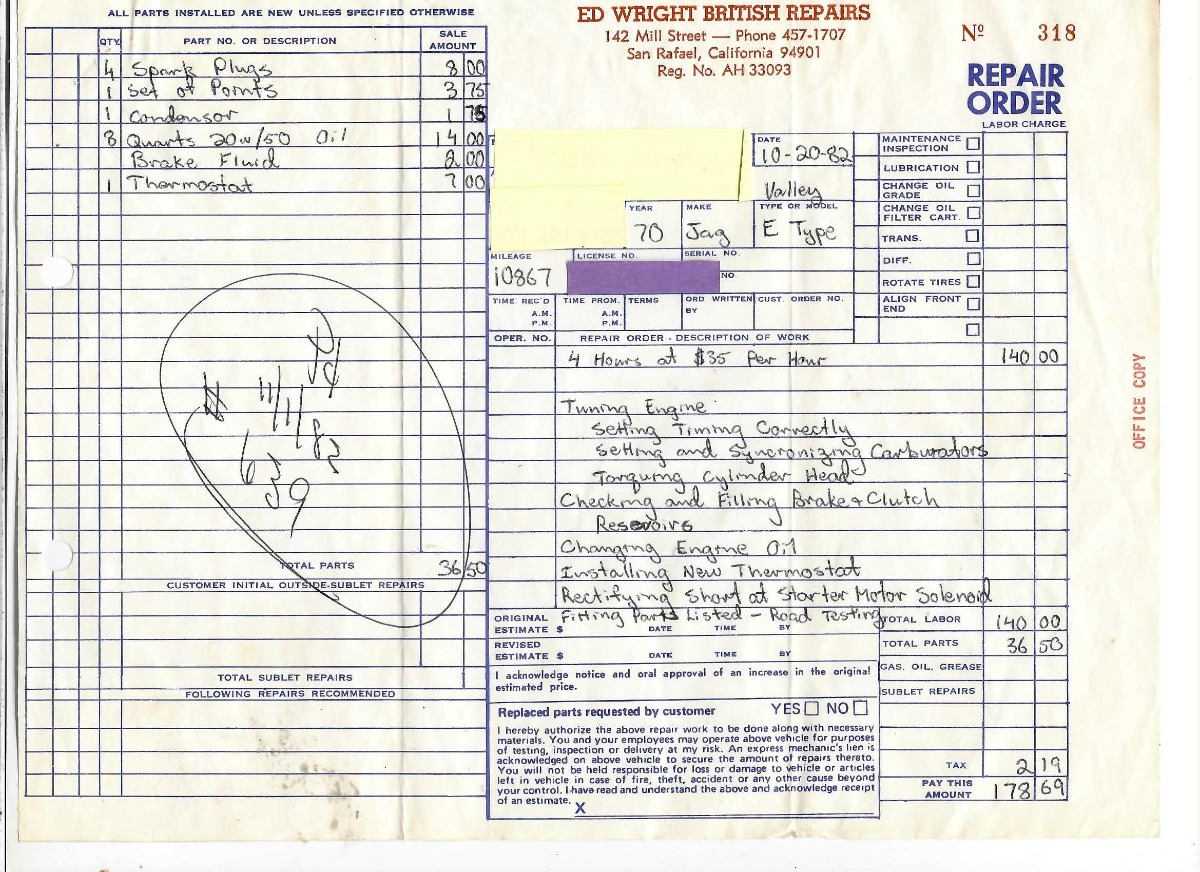 ALL PARTS INSTALLED ARE NEW UNLESS SPECIFIED OTHERWISE
QTY. PART NO. OR DESCRIPTION SALE AMOUNT
4 Spark Plugs 8 00
1 Set of Points 3 75
1 Condensor 1 75
8 Quarts 20w/50 Oil 14 00
Brake Fluid 2 00
1 Thermostat 7 00
Pd
11/11/82
# 639
TOTAL PARTS 36 50
CUSTOMER INITIAL OUTSIDE-SUBLET REPAIRS
TOTAL SUBLET REPAIRS
FOLLOWING REPAIRS RECOMMENDED
ED WRIGHT BRITISH REPAIRS
142 Mill Street — Phone 457-1707
San Rafael, California 94901
Reg. No. AH 33093
Nº 318
REPAIR
ORDER
LABOR CHARGE
DATE
10-20-82
Valley
YEAR MAKE TYPE OR MODEL
70 Jag E Type
MILEAGE LICENSE NO. SERIAL NO.
10867
NO.
TIME REC'D TIME PROM. TERMS ORD WRITTEN BY CUST. ORDER NO.
A.M. A.M.
P.M. P.M.
MAINTENANCE INSPECTION
LUBRICATION
CHANGE OIL GRADE
CHANGE OIL FILTER CART.
TRANS.
DIFF.
ROTATE TIRES
ALIGN FRONT END
OPER. NO. REPAIR ORDER - DESCRIPTION OF WORK
4 Hours at $35 Per Hour 140 00
Tuning Engine
Setting Timing Correctly
Setting and Syncronizing Carburators
Torquing Cylinder Head
Checking and Filling Brake + Clutch
Resevoirs
Changing Engine Oil
Installing New Thermostat
Rectifying Short at Starter Motor Solenoid
Fitting Parts Listed - Road Testing
ORIGINAL ESTIMATE $ DATE TIME BY
REVISED ESTIMATE $ DATE TIME BY
I acknowledge notice and oral approval of an increase in the original
estimated price.
Replaced parts requested by customer YES NO
I hereby authorize the above repair work to be done along with necessary
materials. You and your employees may operate above vehicle for purposes
of testing, inspection or delivery at my risk. An express mechanic's lien is
acknowledged on above vehicle to secure the amount of repairs thereto.
You will not be held responsible for loss or damage to vehicle or articles
left in vehicle in case of fire, theft, accident or any other cause beyond
your control. I have read and understand the above and acknowledge receipt
of an estimate.
X
TOTAL LABOR 140 00
TOTAL PARTS 36 50
GAS, OIL, GREASE
SUBLET REPAIRS
TAX 2 19
PAY THIS AMOUNT 178 69
OFFICE COPY